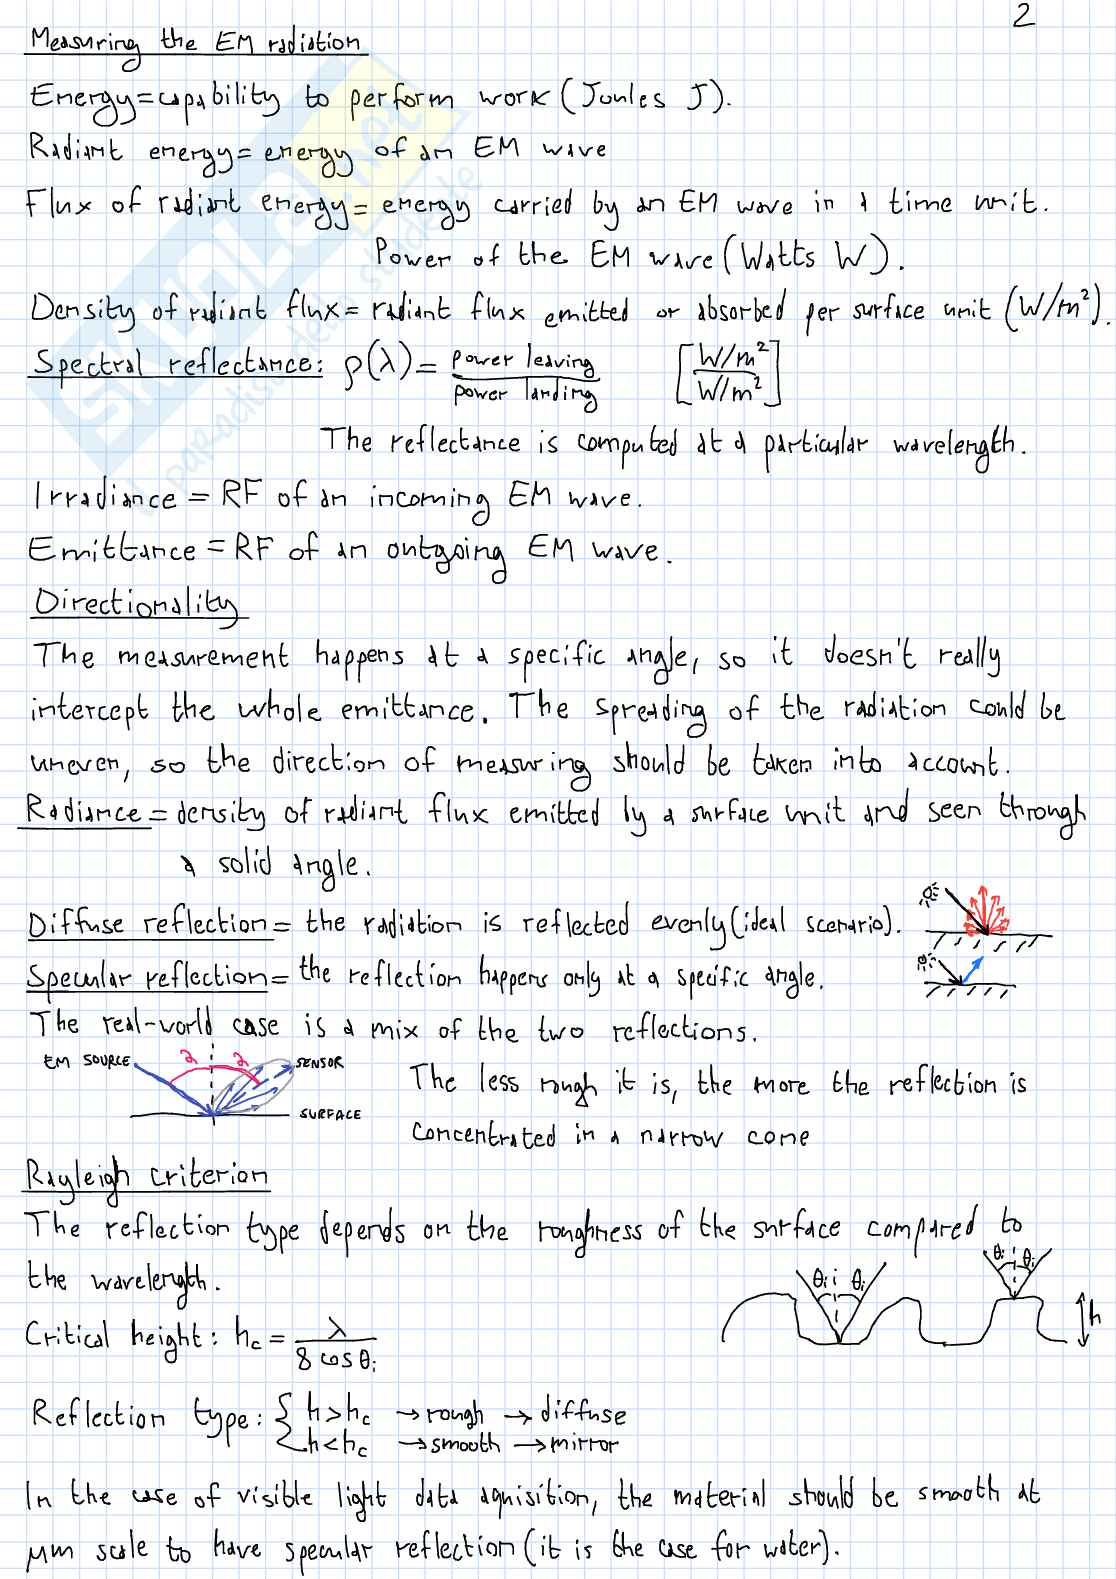 2
Measuring the EM radiation
Energy=capability to perform work (Joules J).
Radiant energy= energy of an EM wave
Flux of radiant energy= energy carried by an EM wave in a time unit.
Power of the EM wave (Watts W).
Density of radiant flux= radiant flux emitted or absorbed per surface unit (W/m²).
Spectral reflectance: ρ(λ)= power leaving / power landing [W/m² / W/m²]
The reflectance is computed at a particular wavelength.
Irradiance = RF of an incoming EM wave.
Emittance = RF of an outgoing EM wave.
Directionality
The measurement happens at a specific angle, so it doesn't really
intercept the whole emittance. The spreading of the radiation could be
uneven, so the direction of measuring should be taken into account.
Radiance = density of radiant flux emitted by a surface unit and seen through
a solid angle.
Diffuse reflection= the radiation is reflected evenly (ideal scenario).
Specular reflection= the reflection happens only at a specific angle.
The real-world case is a mix of the two reflections.
EM SOURCE 2 2 SENSOR
SURFACE
The less rough it is, the more the reflection is
concentrated in a narrow cone
Rayleigh criterion
The reflection type depends on the roughness of the surface compared to
the wavelength.
θi θi θi θi h
Critical height: hc = λ / 8 cosθi
Reflection type: { h>hc → rough → diffuse
h<hc → smooth → mirror
In the case of visible light data aquisition, the material should be smooth at
μm scale to have specular reflection (it is the case for water).
SKUOLA.net
paradiso dello studente